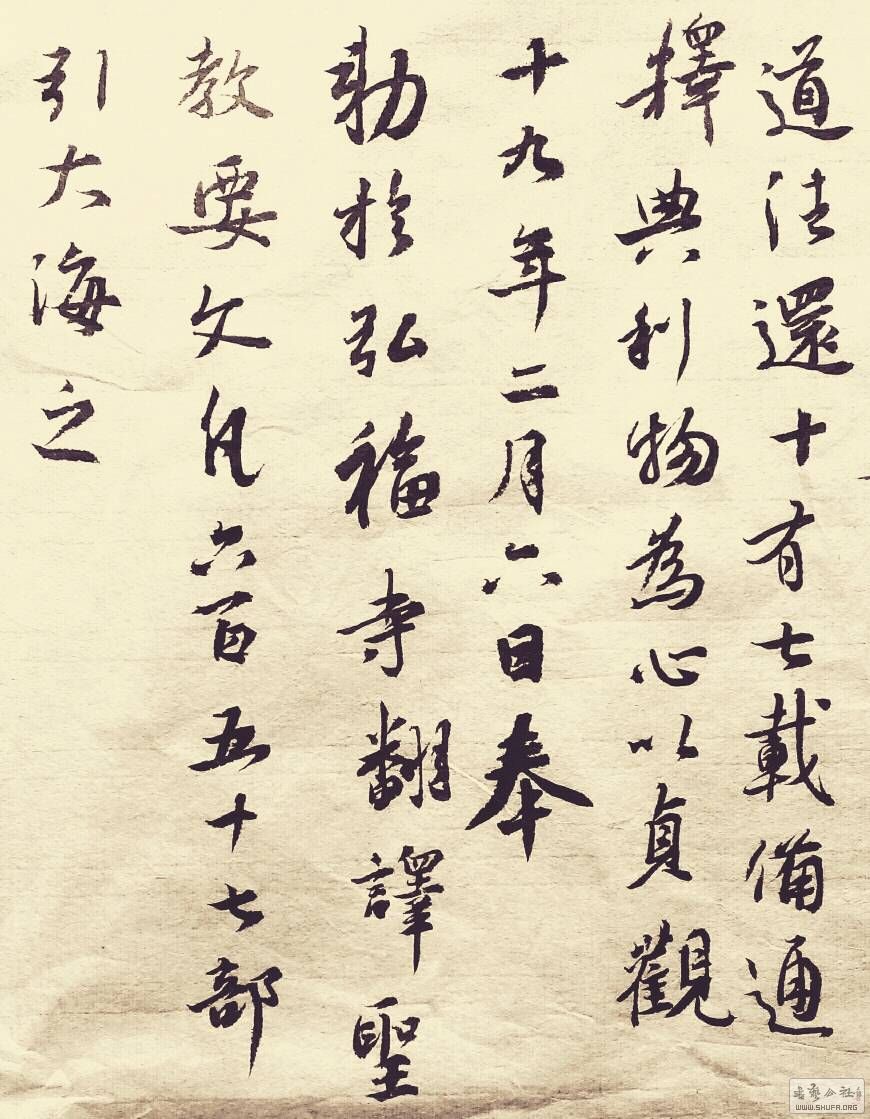 道往還十有七載備通
釋典利物為心以貞觀
十九年二月六日奉
勅於弘福寺翻譯聖
教要文凡六百五十七部
引大海之
WWW.SHUFA.ORG